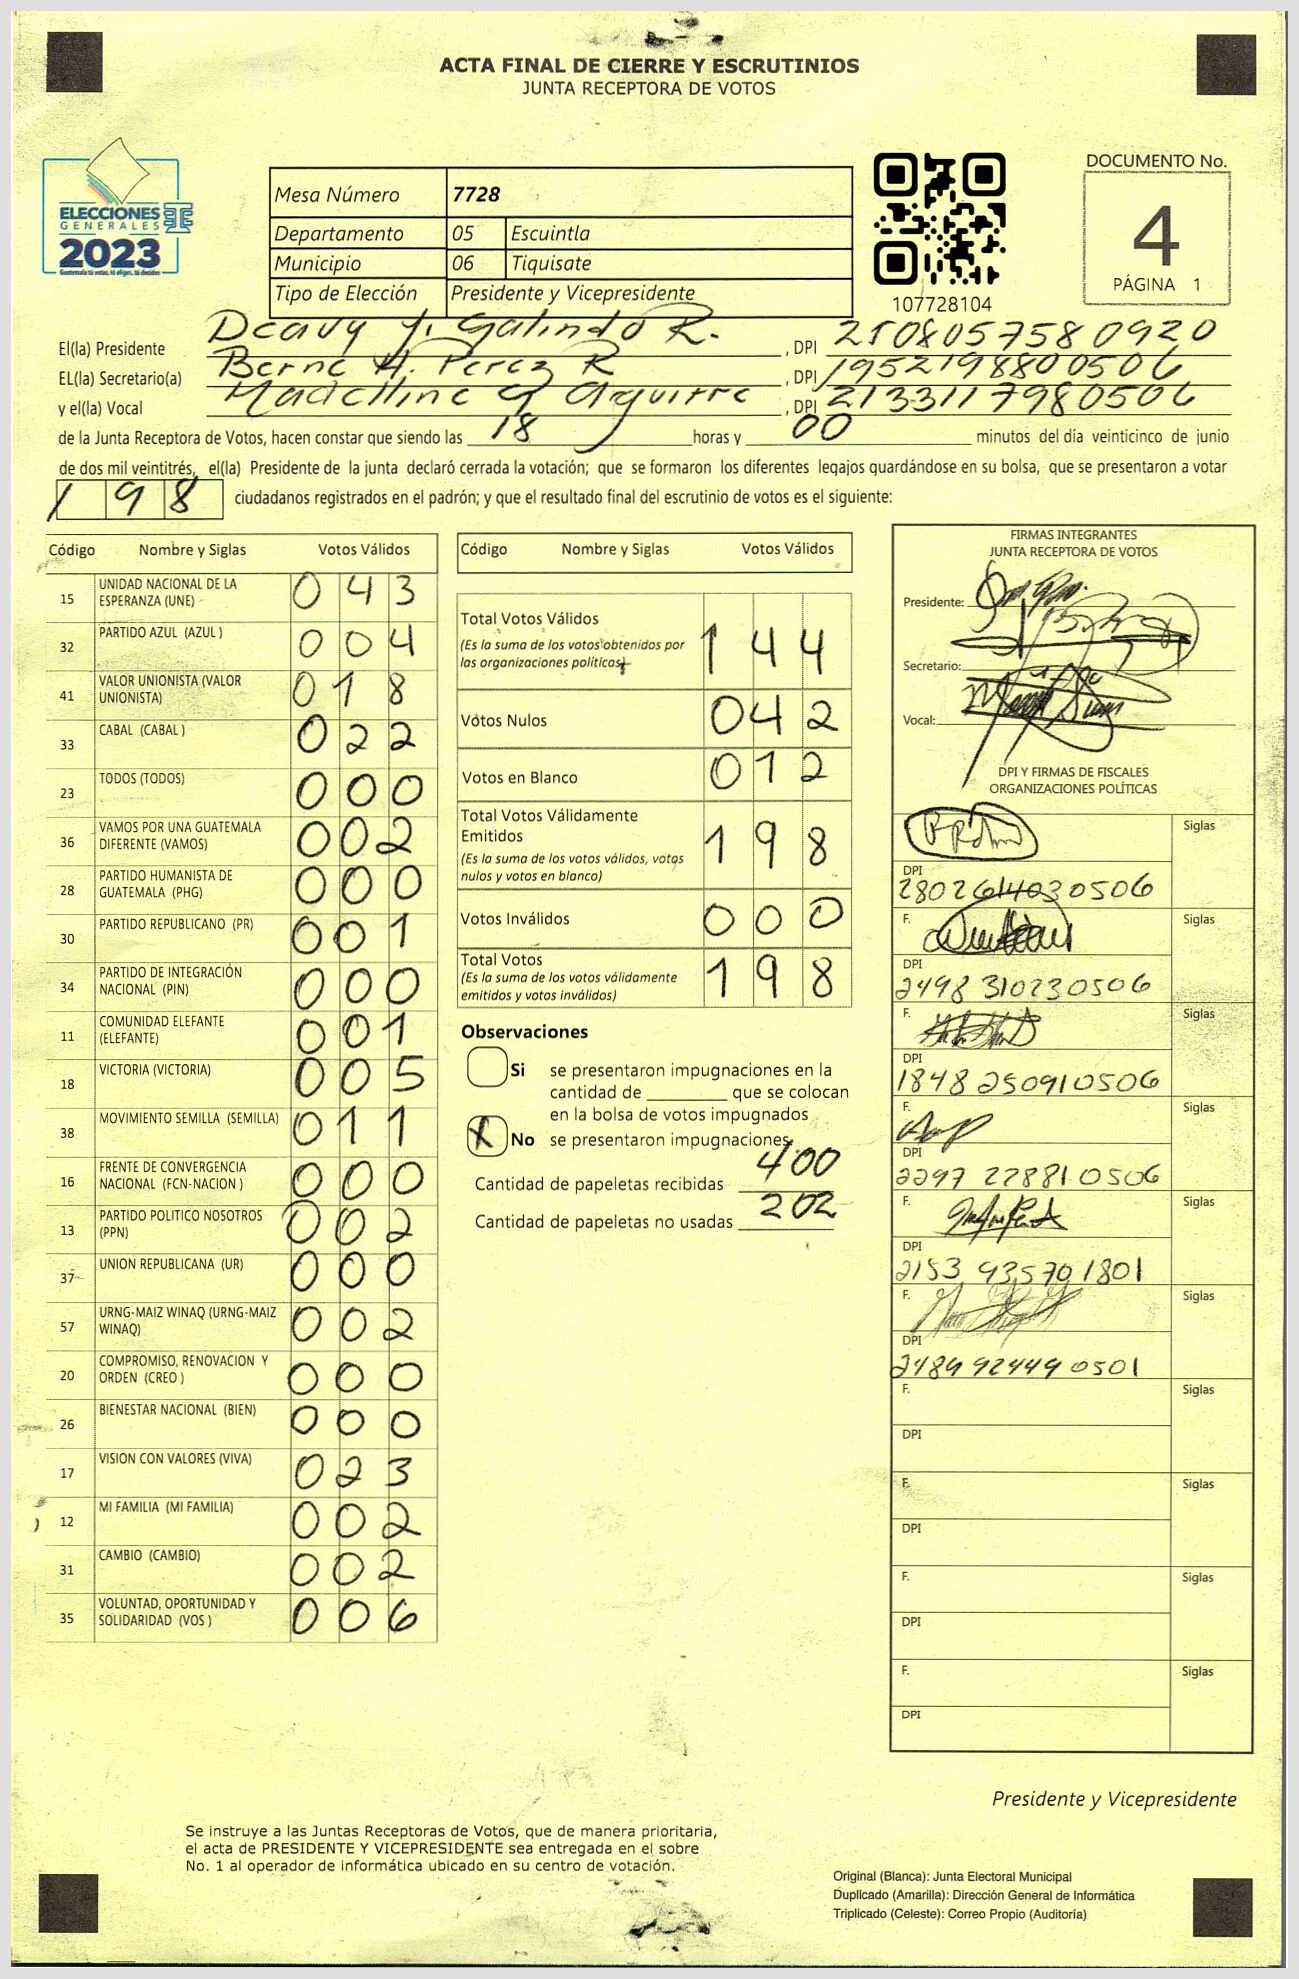 ACTA FINAL DE CIERRE Y ESCRUTINIOS
JUNTA RECEPTORA DE VOTOS
ELECCIONES
GENERALES
2023
Guatemala tú votas, tú eliges, tú decides
Mesa Número 7728
Departamento 05 Escuintla
Municipio 06 Tiquisate
Tipo de Elección Presidente y Vicepresidente
107728104
DOCUMENTO No.
4
PÁGINA 1
El(la) Presidente Deavy Y. Galindo R. , DPI 2508057580920
EL(la) Secretario(a) Berne H. Perez R , DPI 1952198800506
y el(la) Vocal Madelline Aguirre , DPI 2133117980506
de la Junta Receptora de Votos, hacen constar que siendo las 18 horas y 00 minutos del día veinticinco de junio
de dos mil veintitrés, el(la) Presidente de la junta declaró cerrada la votación; que se formaron los diferentes legajos guardándose en su bolsa, que se presentaron a votar
198 ciudadanos registrados en el padrón; y que el resultado final del escrutinio de votos es el siguiente:
Código Nombre y Siglas Votos Válidos
15 UNIDAD NACIONAL DE LA ESPERANZA (UNE) 043
32 PARTIDO AZUL (AZUL ) 004
41 VALOR UNIONISTA (VALOR UNIONISTA) 018
33 CABAL (CABAL ) 022
23 TODOS (TODOS) 000
36 VAMOS POR UNA GUATEMALA DIFERENTE (VAMOS) 002
28 PARTIDO HUMANISTA DE GUATEMALA (PHG) 000
30 PARTIDO REPUBLICANO (PR) 001
34 PARTIDO DE INTEGRACIÓN NACIONAL (PIN) 000
11 COMUNIDAD ELEFANTE (ELEFANTE) 001
18 VICTORIA (VICTORIA) 005
38 MOVIMIENTO SEMILLA (SEMILLA) 011
16 FRENTE DE CONVERGENCIA NACIONAL (FCN-NACION ) 000
13 PARTIDO POLITICO NOSOTROS (PPN) 002
37 UNION REPUBLICANA (UR) 000
57 URNG-MAIZ WINAQ (URNG-MAIZ WINAQ) 002
20 COMPROMISO, RENOVACION Y ORDEN (CREO ) 000
26 BIENESTAR NACIONAL (BIEN) 000
17 VISION CON VALORES (VIVA) 023
12 MI FAMILIA (MI FAMILIA) 002
31 CAMBIO (CAMBIO) 002
35 VOLUNTAD, OPORTUNIDAD Y SOLIDARIDAD (VOS ) 006
Código Nombre y Siglas Votos Válidos
Total Votos Válidos 144
(Es la suma de los votos obtenidos por
las organizaciones políticas)
Votos Nulos 042
Votos en Blanco 012
Total Votos Válidamente
Emitidos 198
(Es la suma de los votos válidos, votos
nulos y votos en blanco)
Votos Inválidos 000
Total Votos 198
(Es la suma de los votos válidamente
emitidos y votos inválidos)
Observaciones
Si se presentaron impugnaciones en la
cantidad de ________ que se colocan
en la bolsa de votos impugnados
X No se presentaron impugnaciones
Cantidad de papeletas recibidas 400
Cantidad de papeletas no usadas 202
FIRMAS INTEGRANTES
JUNTA RECEPTORA DE VOTOS
Presidente:
Secretario:
Vocal:
DPI Y FIRMAS DE FISCALES
ORGANIZACIONES POLÍTICAS
Siglas
DPI
2802614030506
F. Siglas
DPI
2498 310230506
F. Siglas
DPI
1848 250910506
F. Siglas
DPI
2297 228810506
F. Siglas
DPI
2153 935701801
F. Siglas
DPI
2489924490501
F. Siglas
DPI
F. Siglas
DPI
F. Siglas
DPI
F. Siglas
DPI
Presidente y Vicepresidente
Se instruye a las Juntas Receptoras de Votos, que de manera prioritaria,
el acta de PRESIDENTE Y VICEPRESIDENTE sea entregada en el sobre
No. 1 al operador de informática ubicado en su centro de votación.
Original (Blanca): Junta Electoral Municipal
Duplicado (Amarilla): Dirección General de Informática
Triplicado (Celeste): Correo Propio (Auditoría)